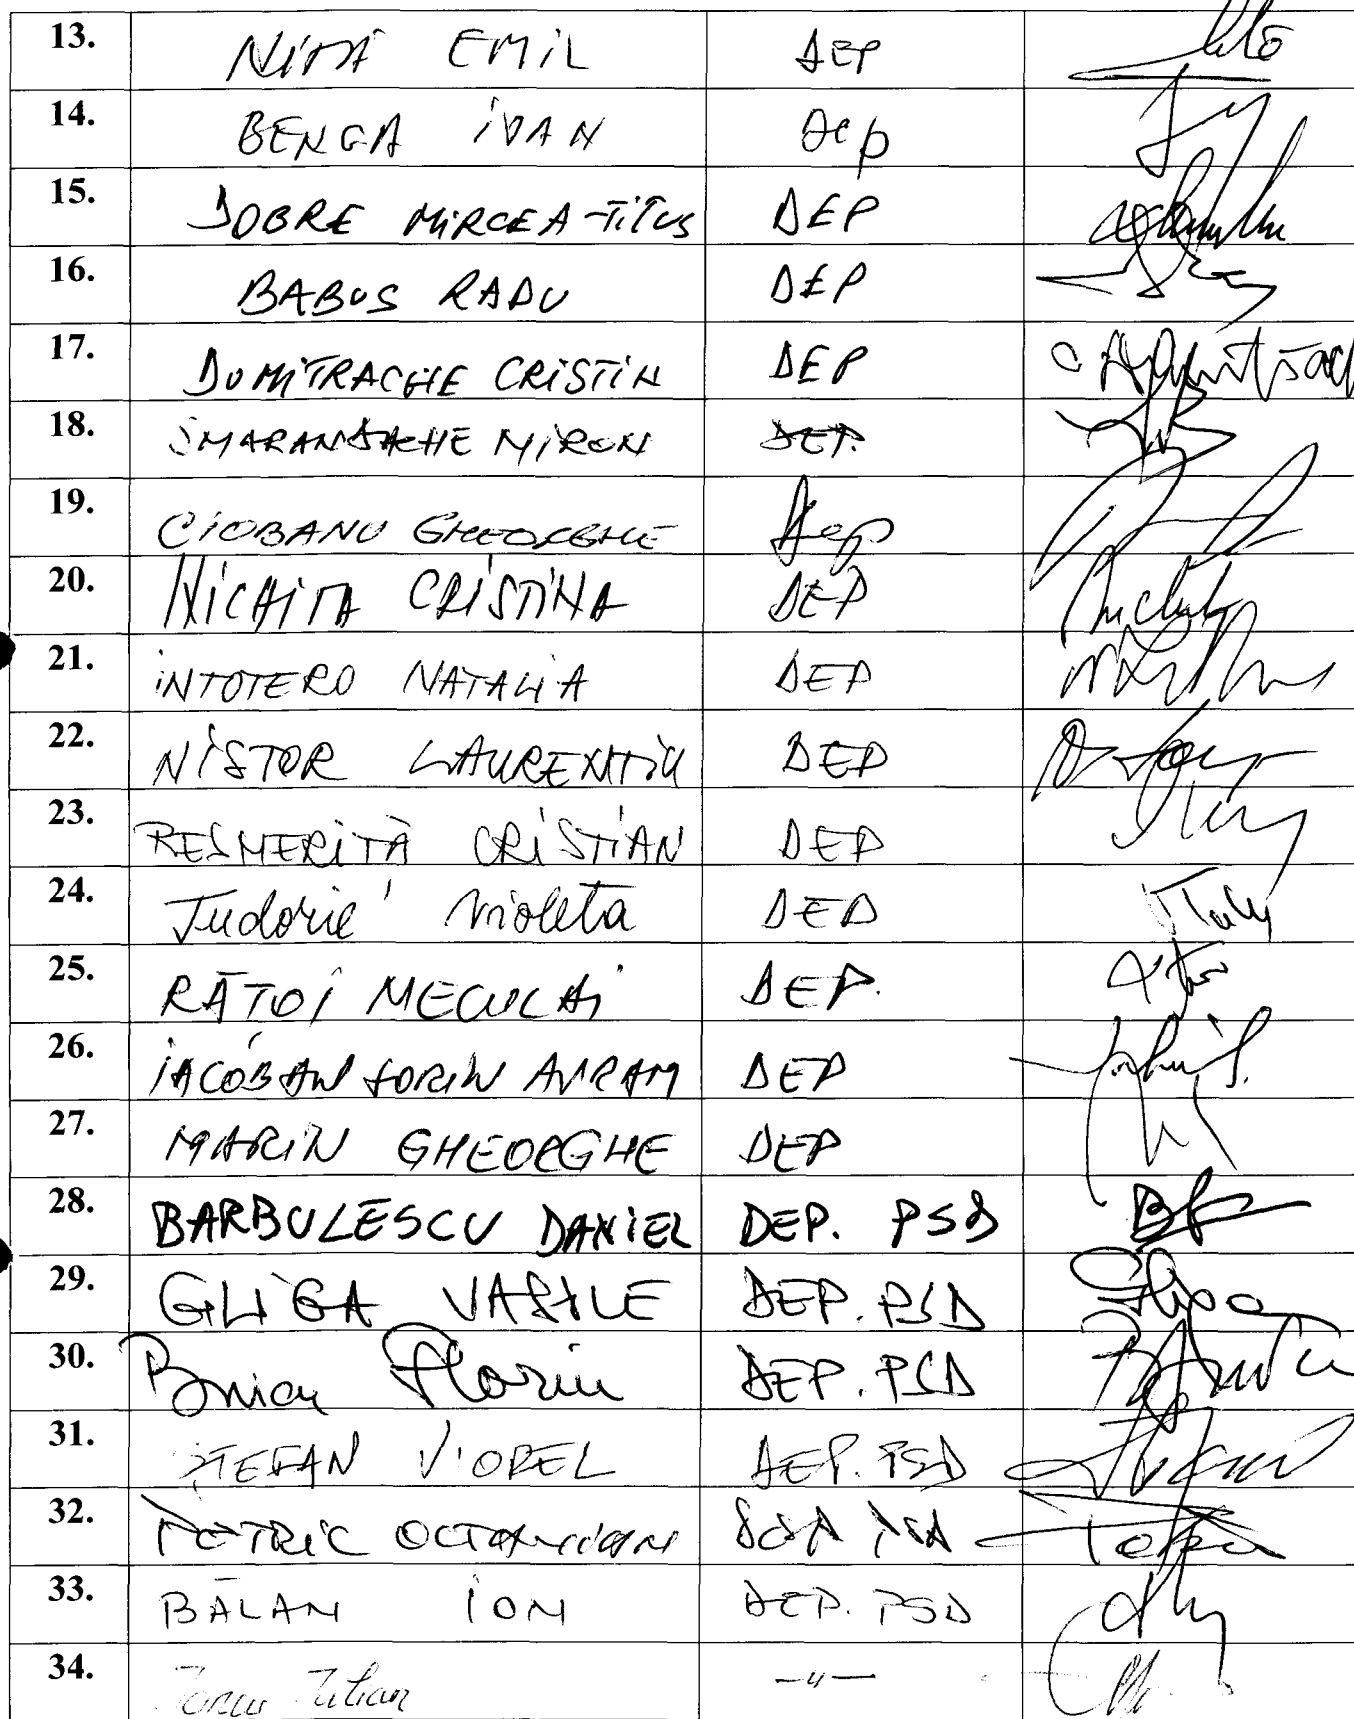 13. NIȚĂ EMIL DEP
14. BENGA IVAN Dep
15. DOBRE MIRCEA-TITUS DEP
16. BABUS RADU DEP
17. DUMITRACHE CRISTIN DEP
18. SMARANDACHE MIRON DEP.
19. CIOBANU GHEORGHE Dep
20. NICHITA CRISTINA DEP
21. INTOTERO NATALIA DEP
22. NISTOR LAURENTIU DEP
23. RESMERITĂ CRISTIAN DEP
24. Tudorie Violeta DEP
25. RĂTOI NECULAI DEP.
26. IACOBAN SORIN AVRAM DEP
27. MARIN GHEORGHE DEP
28. BARBULESCU DANIEL DEP. PSD
29. GLIGA VASILE DEP. PSD
30. Florin DEP. PSD
31. ȘTEFAN VIOREL DEP. PSD
32. PETRIC OCTAVIAN PSD
33. BĂLAN ION DEP. PSD
34. Iancu Iulian —"—